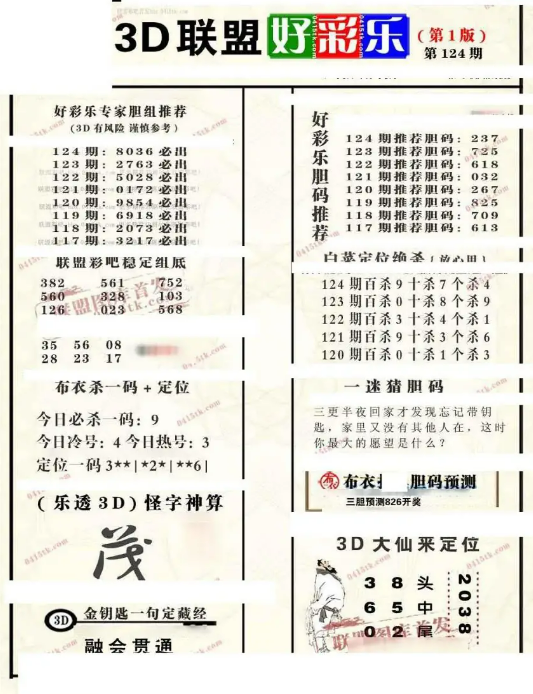 3D联盟好彩乐
(第1版)
第124期
好彩乐专家胆组推荐
(3D有风险 谨慎参考)
124期: 8036必出
123期: 2763必出
122期: 5028必出
121期: 0172必出
120期: 9854必出
119期: 6918必出
118期: 2073必出
117期: 3217必出
联盟彩吧稳定组底
382 561 752
560 328 103
126 023 568
35 56 08
28 23 17
布衣杀一码+定位
今日必杀一码: 9
今日冷号: 4 今日热号: 3
定位一码 3**|*2*|**6|
(乐透3D)怪字神算
茂
3D 金钥匙一句定藏经
融会贯通
好彩乐胆码推荐
124期推荐胆码: 237
123期推荐胆码: 725
122期推荐胆码: 618
121期推荐胆码: 032
120期推荐胆码: 267
119期推荐胆码: 825
118期推荐胆码: 709
117期推荐胆码: 613
白菜定位绝杀(放心用)
124期百杀9十杀7个杀4
123期百杀0十杀8个杀9
122期百杀3十杀4个杀1
121期百杀9十杀3个杀6
120期百杀0十杀1个杀3
一迷猜胆码
三更半夜回家才发现忘记带钥
匙,家里又没有其他人在,这时
你最大的愿望是什么?
布衣 胆码预测
三胆预测826开奖
3D大仙来定位
3 8 头
6 5 中
0 2 尾
2038